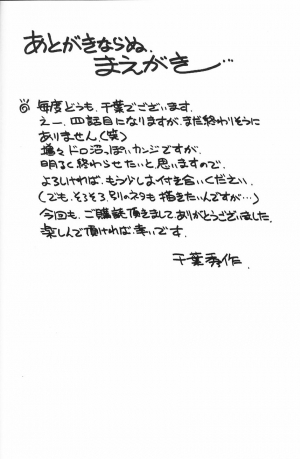 あとがきならぬ、
まえがき…
◎ 毎度どうも、千葉でございます。
えー、四話目になりますが、まだ終わりそうに
ありません（笑）
増々ドロ沼っぽいカンジですが、
明るく終わらせたいと思いますので、
よろしければ、もう少しお付き合いください。
（でも、そろそろ別のネタも描きたいんですが…）
今回も、ご購読頂きまして、ありがとうございました。
楽しんで頂ければ幸いです。
千葉秀作